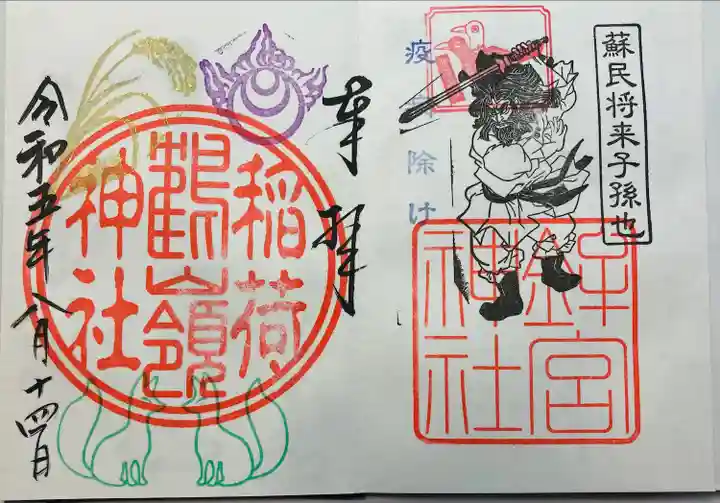 奉拝
稲荷
鶴嶺
神社
令和五年八月十四日
蘇民将来子孫也
疫病除け
鉾宮
神社